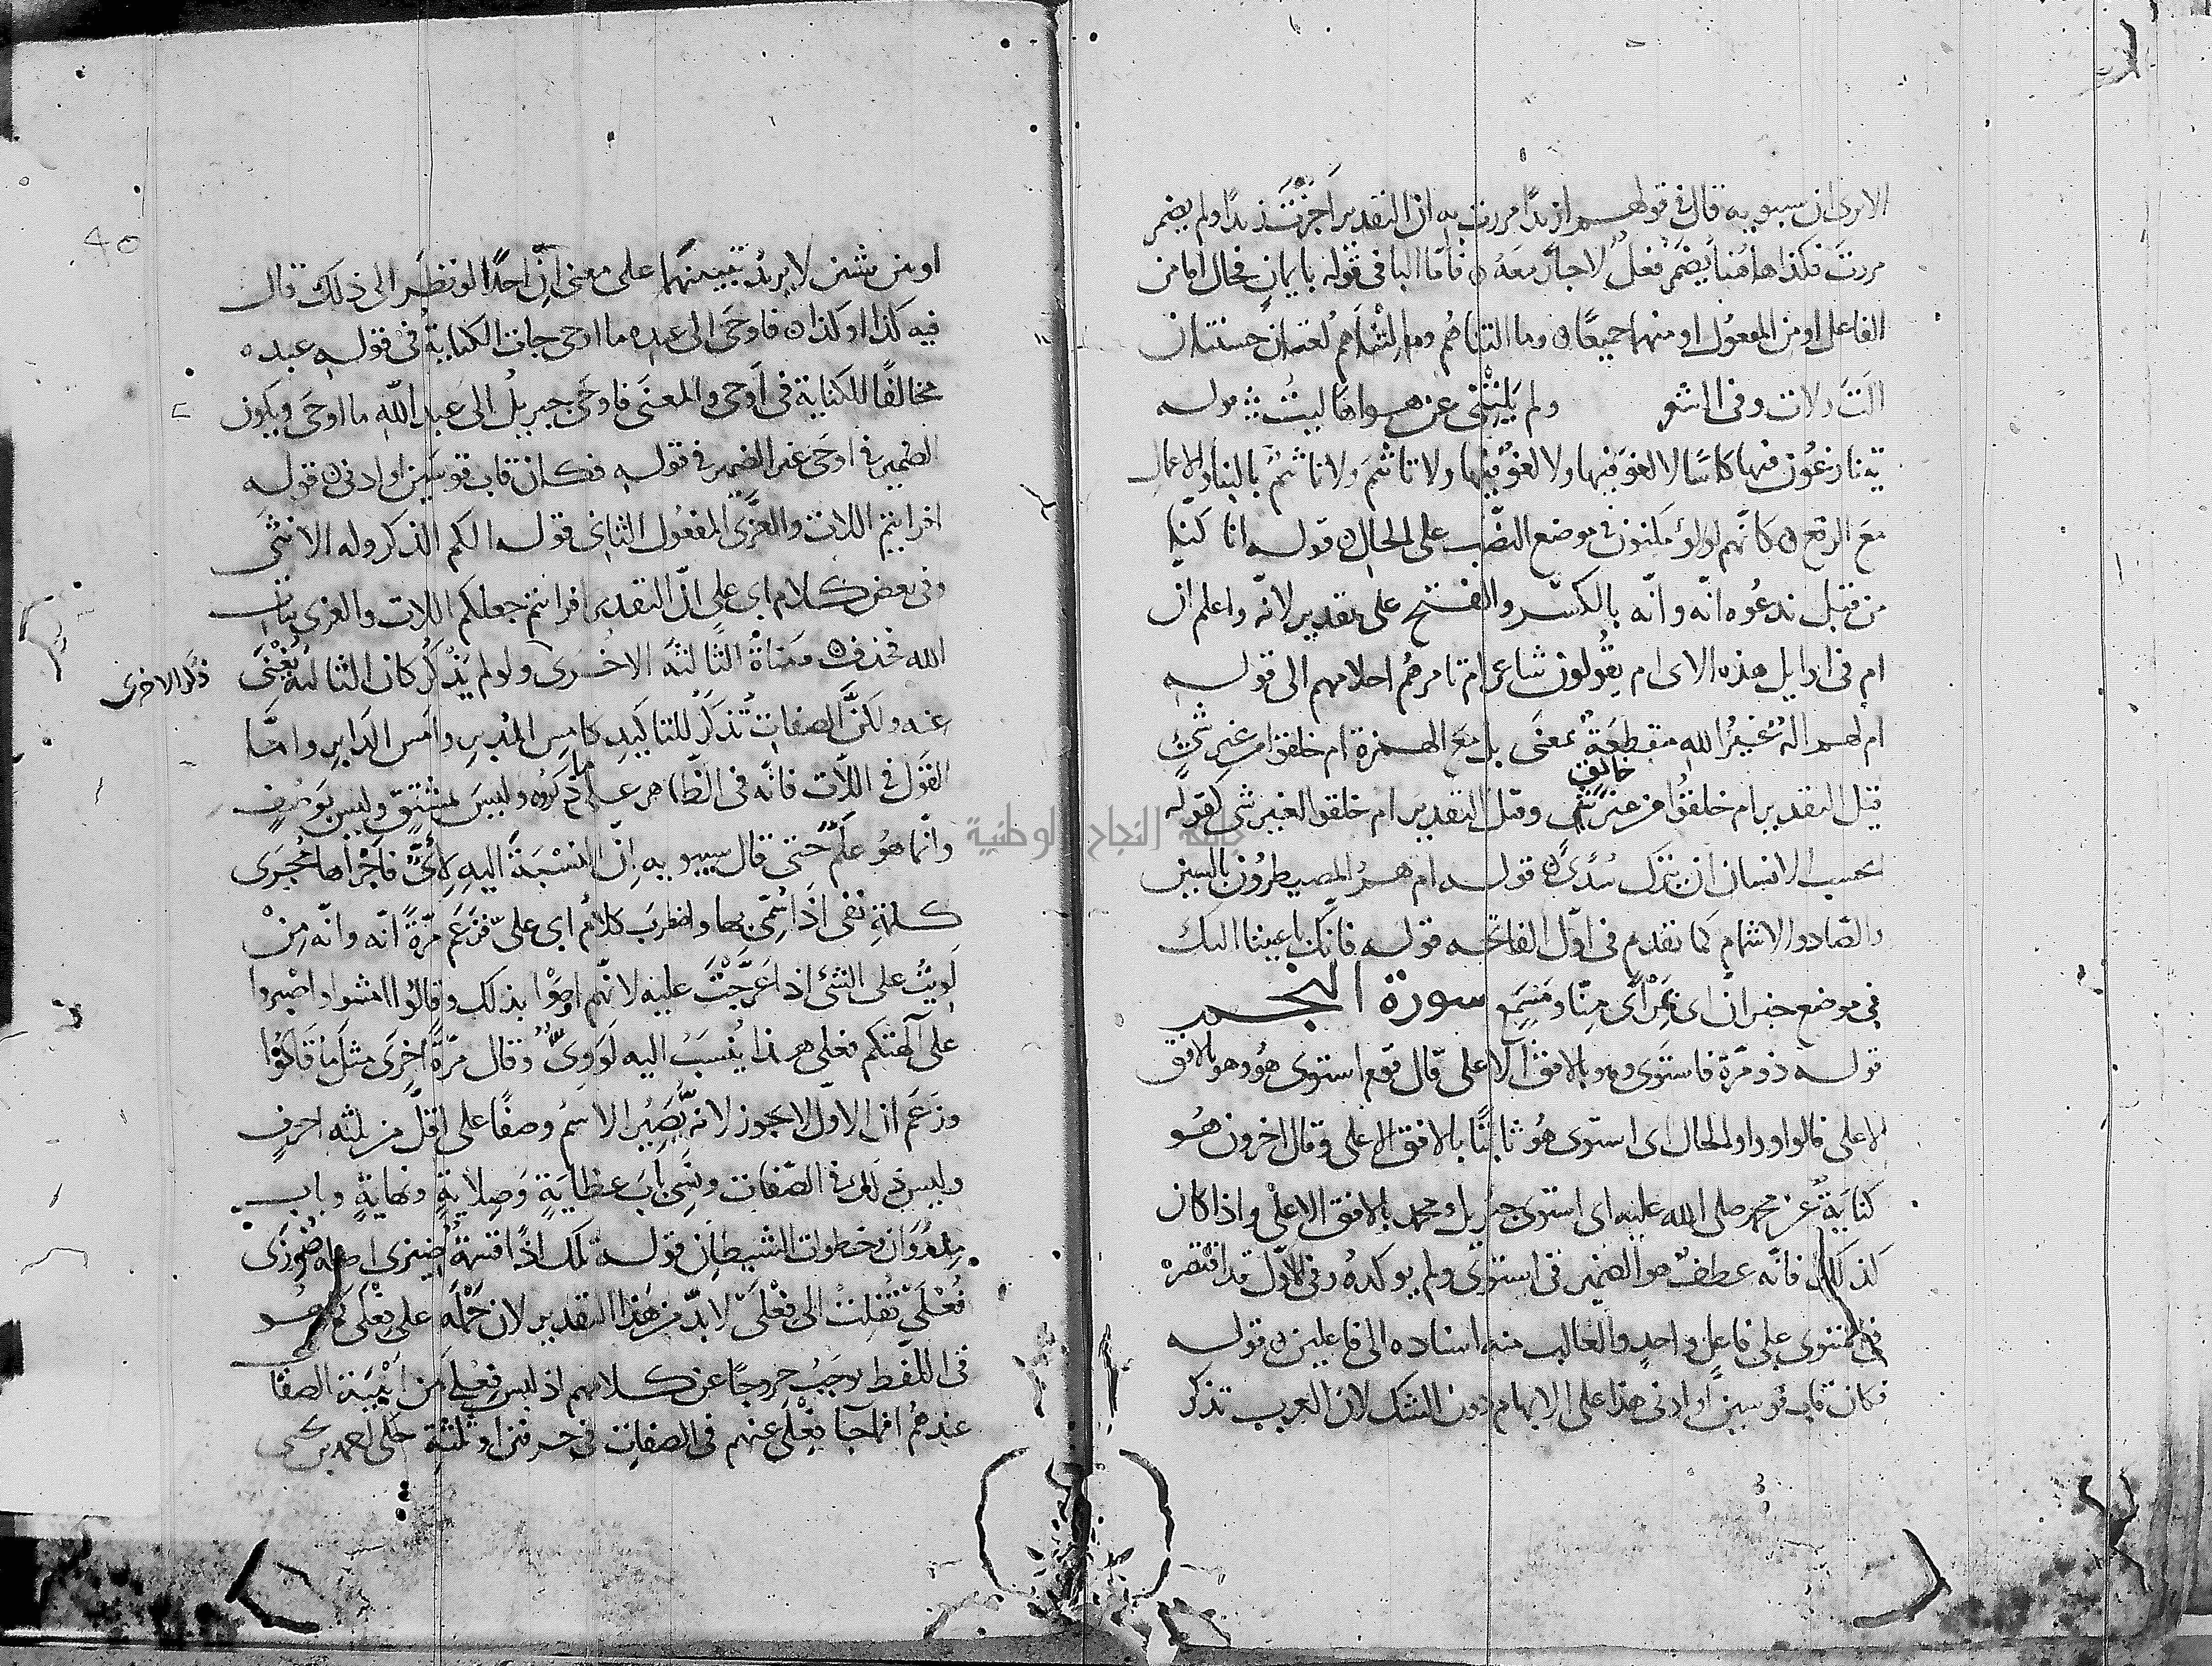 الا ترى ان سيبويه قال في قولهم ازيدًا مررت به ان التقدير اَجُزْتَ زيدًا ولم يضمر
مررتَ فكذا هاهُنا يُضمَر فعلٌ لاجل معهُ ن فاما البا في قوله بايمانٍ فحال اما من
الفاعل او من المفعول او منهما جميعًا ن وما التناهُم وما اَلِتْناهم لُغتان حسنتان
الَتَ ولات وفي الشعر ولم يَلِتْني عن هواها ليتُ قوله
يتنازعُون فيها كاسًا لا لغوَ فيها ولا لغوٌ فيها ولا تاثيمَ ولا تاثيمٌ بالبنا والاعمال
معَ الرفع ن كانّهم لولؤ مكنون في موضع النصْب على الحال ن قوله انا كنّا
من قبل ندعُوه انّه وانّه بالكسْر والفتح على تقدير لانّه واعلم ان
ام في اوايل هذه الاى ام يقُولون شاعر ام تامرهُم احلامهم الى قوله
ام لهم الهٌ غيرُ الله منقطعَةٌ بمعنَى بل معَ الهمزة ام خلقوا من غير شئٍ
قيل التقدير ام خلقُوا من غير شئ خالق وقيل التقدير ام خلقوا لغير شى كقوله
ايحسب الانسان ان يترك سُدًى ن قوله ام هم المصيطرُون بالسين
والصّاد والاشمام كما تقدم في اوّل الفاتحه قوله فانّك باعيننا اليك
في موضع خبر انّ اى بمَرْأًى مِنّا ومَسْمَعٍ سورة النجم
قوله ذو مرّة فاستوَى وهو بالافق الاعلى قال قوم استوى هُو وهو بالافق
الاعلى قالوا واو الحال اى استوى هُو ثابتًا بالافق الاعلى وقال اخرون هُو
كنايَةٌ عن محمد صلى الله عليه اى استوى جبريل ومحمد بالافق الاعلى واذا كان
كذلك فانّه عطفٌ هو الضمير في استوى ولم يوكدهُ وفي الاوّل قد اقتصره
في استوى على فاعلٍ واحدٍ والغالب منه اسناده الى فاعلين ن قوله
فكان قاب قوسين او ادنى هذا على الابهام دون الشك لان العرب تذكر
او من شيئين لا يريدُ تبيينهُما على معنى انّ احدًا لو نظَر الى ذلك قال
فيه كذا او كذا ن فاوحَى الى عبده ما اوحى جات الكنايةُ في قوله عبده
مخالفًا للكناية في اَوحَى والمعنَى فاوحَى جبريلُ الى عبد الله ما اوحَى ويكون
الضمير في اوحَى غير الضمير في قوله فكان قاب قوسَين او ادنى ن قوله
افرايتم اللات والعُزَّى المفعُول الثانى قوله الكم الذكر وله الانثى
وفي بعض كلام ابى على انّ التقدير افرايتم جعلكم اللات والعزى بنات
الله فحذف ن ومناةَ الثالثَة الاخرى ولو لم يَذْكُر كان الثالثة يُغْنَى
ذكر الاخرى
عنه ولكنّ الصفات تُذكَر للتاكيد كامسِ المُدبرِ وامسِ الدابرِ وامّا
القول في اللّات فانّه في الظاهر على ما ذكرُوه وليسَ بمشتقٍّ وليس بوَصفٍ
وانّما هُو عَلَمٌ حتى قال سيبويه اِنّ النسْبَةَ اليهِ لاِئىٌّ فاَجْراها مُجرَى
كلمةِ نفى اذا سُمّى بها واضطربَ كلامُ ابى علىّ فزعَم مرّةً انّه وانّه مِنْ
لَويتُ على الشئ اذا عَرَّجْتَ عليه لانّهم اوصَوْا بذلك وقالُوا امشوا واصبروا
على آلهتكم فعلى هذا يُنسَبُ اليه لَوَوِىٌّ وقال مرّةً اخرَى مثلَ ما قالُوا
وزعَم ان الاوّل لا يجوز لانه يَصيرُ الاسمُ وصفًا على اقلّ من ثلثه احرفٍ
وليس ذلك في الصّفات ونَسِىَ بابَ عظايَةٍ وَصِلايةٍ ونهايةٍ وباب
مِذْرَوَان وخطوات الشيطان قوله تلك اذًا قسمةٌ ضيزى اصله ضُوزَى
فُعْلَى نُقِلتْ الى فِعْلَى لا بدّ من هذا التقدير لان حَمْلَهُ على فِعْلَى كما هُو
في اللّفظ يوجَبُ خروجًا عن كلامهم اذ ليس فِعْلى من اَبْنيَة الصفات
عندهُم انما جا فِعْلَى عنهم في الصفات في حرفين او ثلثةٍ حكى احمد بن يحيى